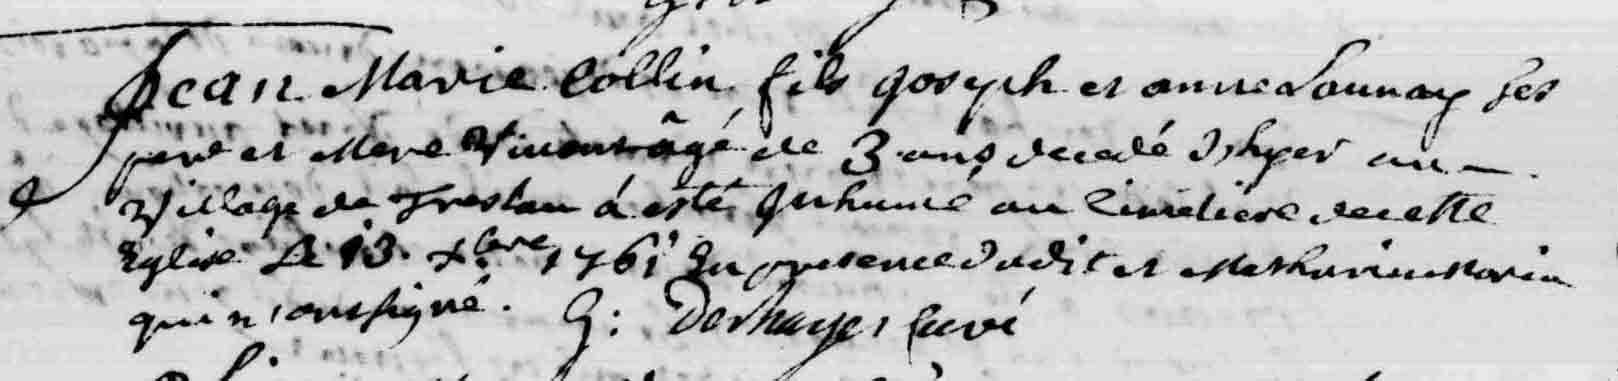 Jean Marie Collin fils joseph et anne Launay ses
pere et Mere Vivents âgé de 3 ans decedé d'hyer au
Village de Treslan á esté Inhumé au Cimetiere de cette
Eglise Le 13. xbre 1761 En presence dudit et Mathurin Morin
qui n'ont signé. G: Deshayes Curé